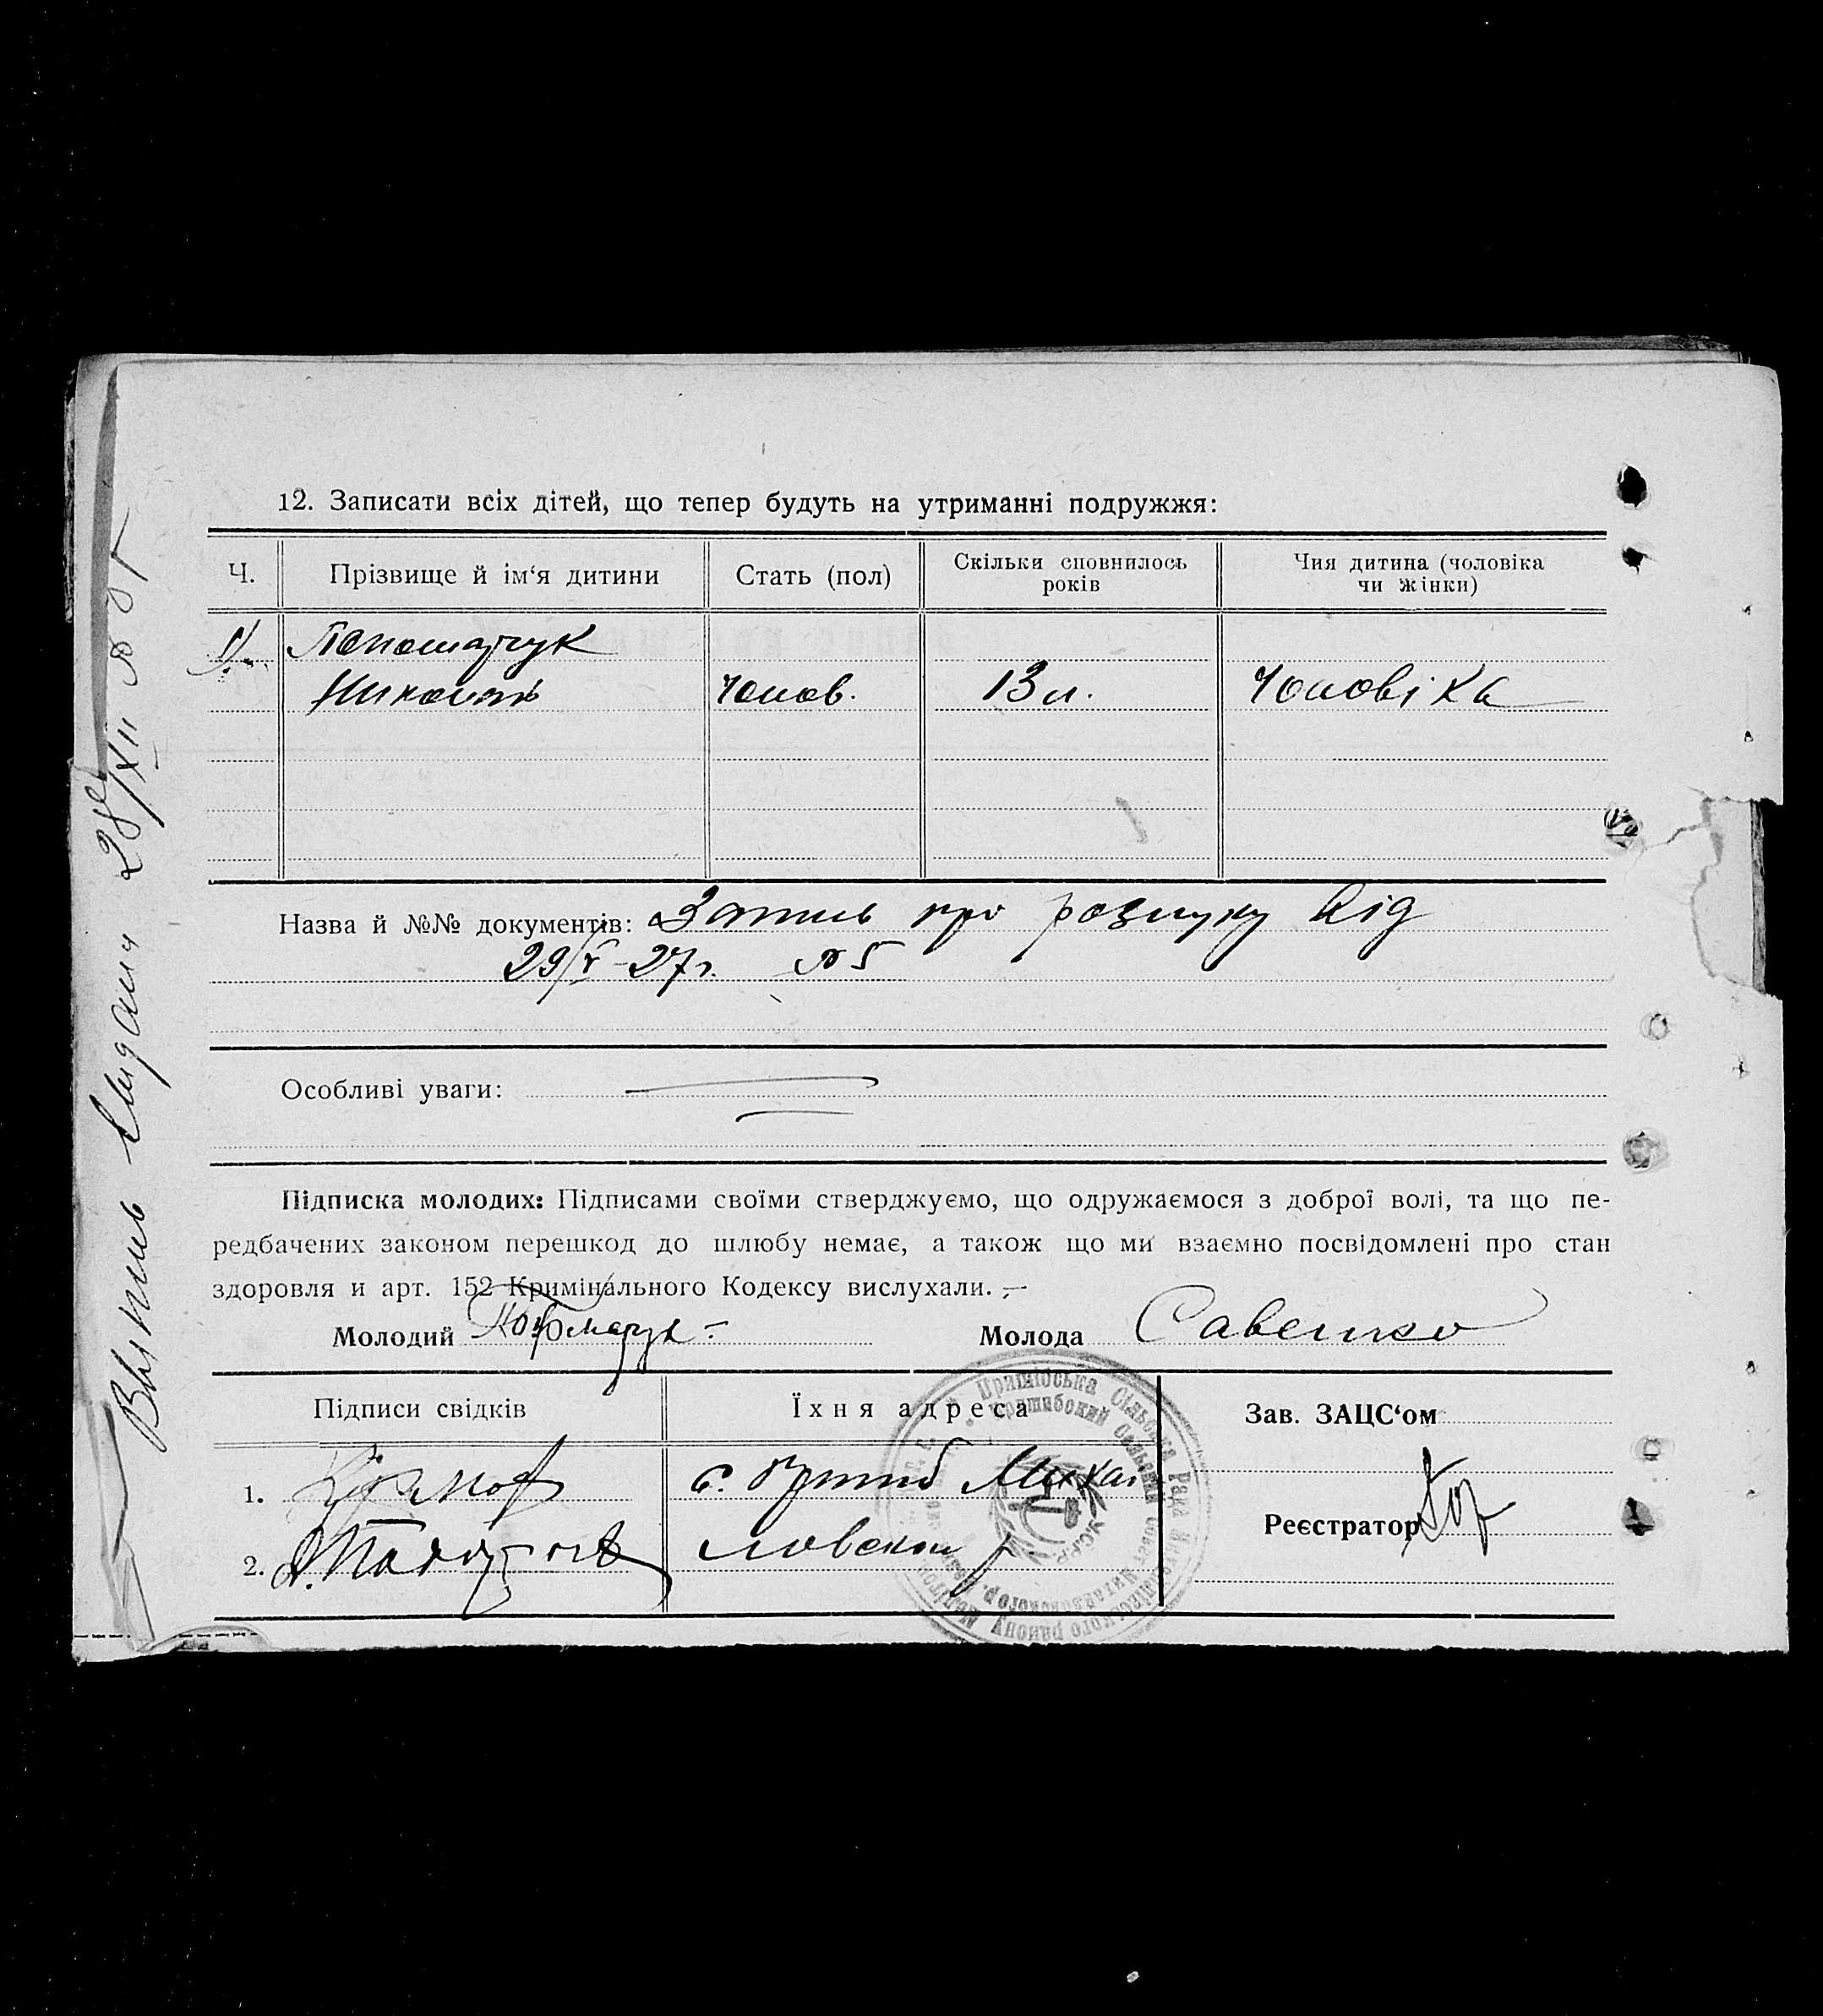 12. Записати всіх дітей, що тепер будуть на утриманні подружжя:
Ч. Прізвище й ім‘я дитини Стать (пол) Скільки сповнилось років Чия дитина (чоловіка чи жінки)
1)
Николай Чолов. 13 л. Чоловіка
Назва й №№ документів: Запись про розлуку від
29/V-27г. № 5
Особливі уваги:
Підписка молодих: Підписами своїми стверджуємо, що одружаємося з доброї волі, та що пе-
редбачених законом перешкод до шлюбу немає, а також що ми взаємно посвідомлені про стан
здоровля и арт. 152 Кримінального Кодексу вислухали. —
Молодий Молода Савенко
Підписи свідків Їхня адреса Зав. ЗАЦС‘ом
1. с. Пришиб Михай
Реєстратор
2. ловской р.
Выпись выдана 28/XII № 85